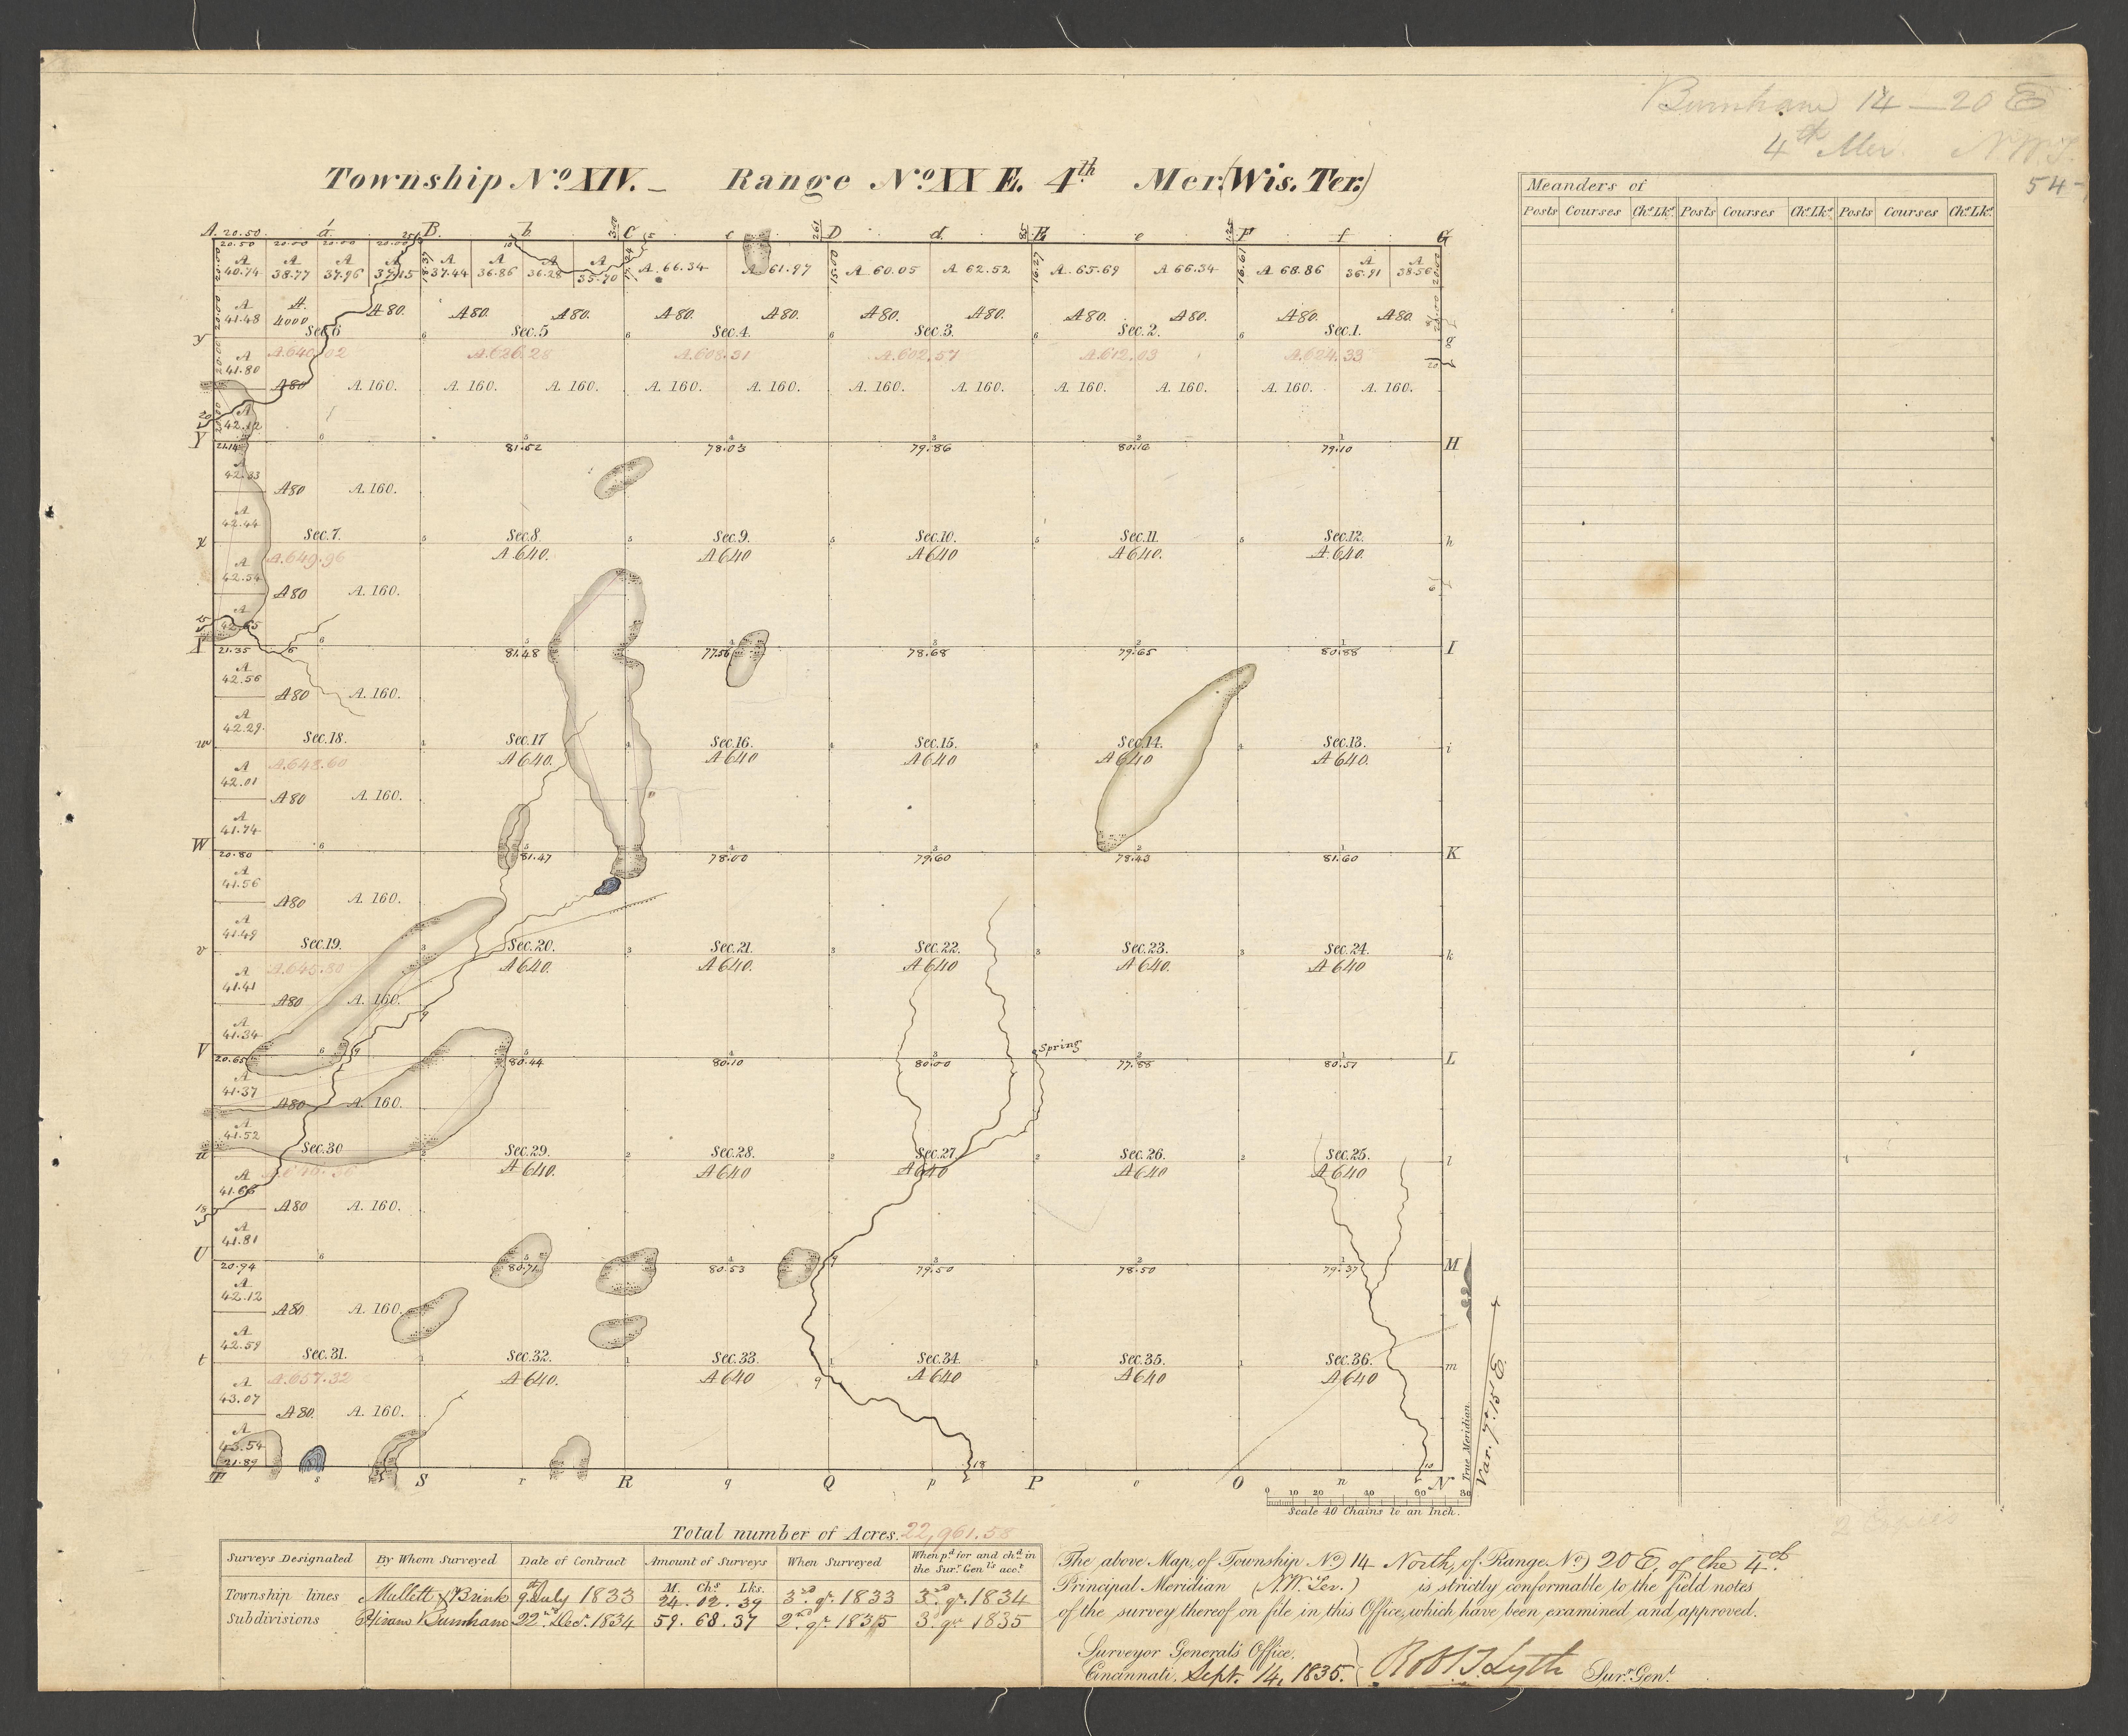 Burnham 14 — 20 E
4th Mer. N.W.T.
54-
Township No. XIV. _ Range No. XX E. 4th Mer. (Wis. Ter.)
Meanders of
Posts Courses Chs. Lks. Posts Courses Chs. Lks. Posts Courses Chs. Lks.
A. 20.50 a B. b C c D d E e F f G
20.50 20.00 20.00 20.00
A 40.74 A 38.77 A 37.96 A 37.15 A 37.44 A 36.86 A 36.28 A 35.70 A. 66.34 A 61.97 A 60.05 A 62.52 A 65.69 A 66.34 A 68.86 A 36.91 A 38.56
18.37 17.24 15.00 16.27 16.61
A 41.48 A 4000 A 80. A 80. A 80. A 80. A 80. A 80. A 80. A 80. A 80. A 80. A 80.
Sec. 6 Sec. 5 Sec. 4. Sec. 3. Sec. 2. Sec. 1.
y g
A 41.80 A. 640.02 A. 626.28 A. 608.31 A. 602.57 A. 612.03 A. 624.33
A 80 A. 160. A. 160. A. 160. A. 160. A. 160. A. 160. A. 160. A. 160. A. 160. A. 160. A. 160.
A 42.12
Y 21.14 81.52 78.03 79.86 80.16 79.10 H
A 42.33
A 80 A. 160.
A 42.44
Sec. 7. Sec. 8. Sec. 9. Sec. 10. Sec. 11. Sec. 12.
x h
A. 649.96 A 640. A 640 A 640 A 640. A 640.
A 42.54
A 80 A. 160.
A 42.65
21.35 81.48 77.56 78.68 79.65 80.88 I
A 42.56
A 80 A. 160.
A 42.29.
Sec. 18. Sec. 17 Sec. 16. Sec. 15. Sec. 14. Sec. 13.
w i
A. 648.60 A 640. A 640 A 640 A 640 A 640.
A 42.01
A 80 A. 160.
A 41.74
W 20.80 81.47 78.00 79.60 78.43 81.60 K
A 41.56
A 80 A. 160.
A 41.49
Sec. 19. Sec. 20. Sec. 21. Sec. 22. Sec. 23. Sec. 24.
v k
A. 645.80 A 640. A 640. A 640 A 640. A 640
A 41.41
A 80 A. 160.
A 41.34
Spring
V 20.65 80.44 80.10 80.00 77.88 80.51 L
A 41.37
A 80 A. 160.
A 41.52
Sec. 30 Sec. 29. Sec. 28. Sec. 27. Sec. 26. Sec. 25.
u l
A 640. A 640 A 640 A 640 A 640
A 41.66
A 80 A. 160.
A 41.81
U 20.94 80.71 80.53 79.50 78.50 79.37 M
A 42.12
A 80 A. 160.
A 42.59
Sec. 31. Sec. 32. Sec. 33. Sec. 34. Sec. 35. Sec. 36.
t m
A. 657.32 A 640. A 640 A 640 A 640 A 640
A 43.07
A 80. A. 160.
A 43.54
21.89
T s S r R q Q p P o O n N
True Meridian.
Var. 7° 15' E.
0 10 20 40 60 80
Scale 40 Chains to an Inch.
Total number of Acres. 22,961.58
Surveys Designated By Whom Surveyed Date of Contract Amount of Surveys When Surveyed When pd. for and chd. in the Surr. Genl's acct.
M. Chs. Lks.
Township lines Mullett & Brink 9th July 1833 24. 02. 39 3rd qr. 1833 3rd qr. 1834
Subdivisions Hiram Burnham 22nd Decr. 1834 59. 68. 37 2nd qr. 1835 3d qr. 1835
The above Map, of Township No. 14 North, of Range No. 20 E, of the 4th
Principal Meridian (N.W. Ter.) is strictly conformable to the field notes
of the survey thereof on file in this Office, which have been examined and approved.
Surveyor General's Office,
Cincinnati, Sept. 14, 1835. Robt. T. Lytle Surr. Genl.